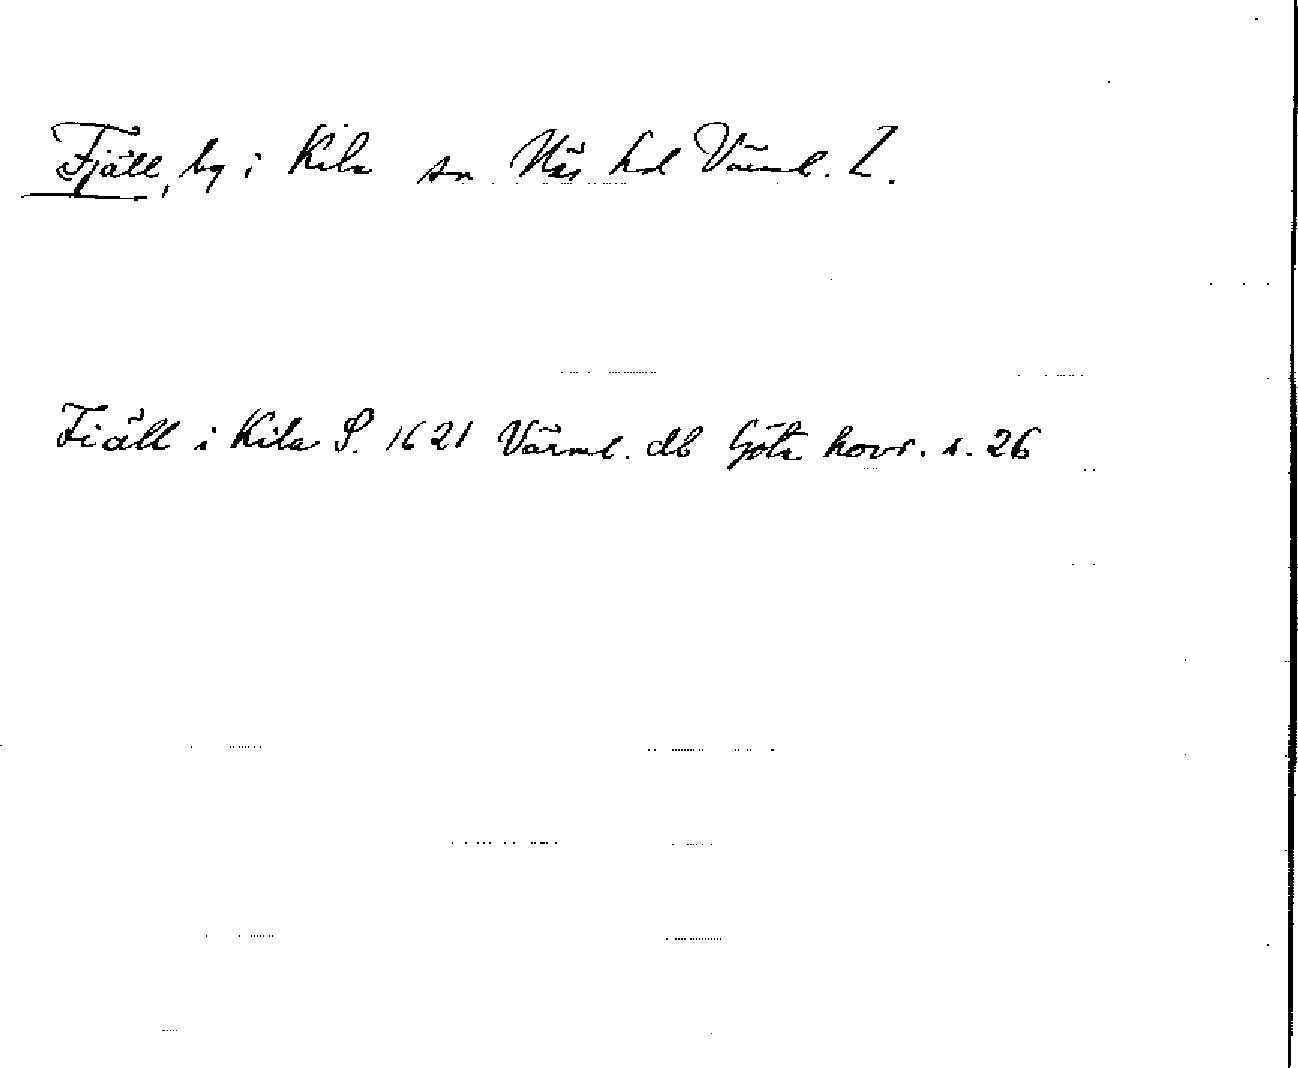 Fjäll, by i Kila sn Näs hd Värml. L.
Fiäll i Kila S. 1621 Värml. db Göta hovr. s. 26